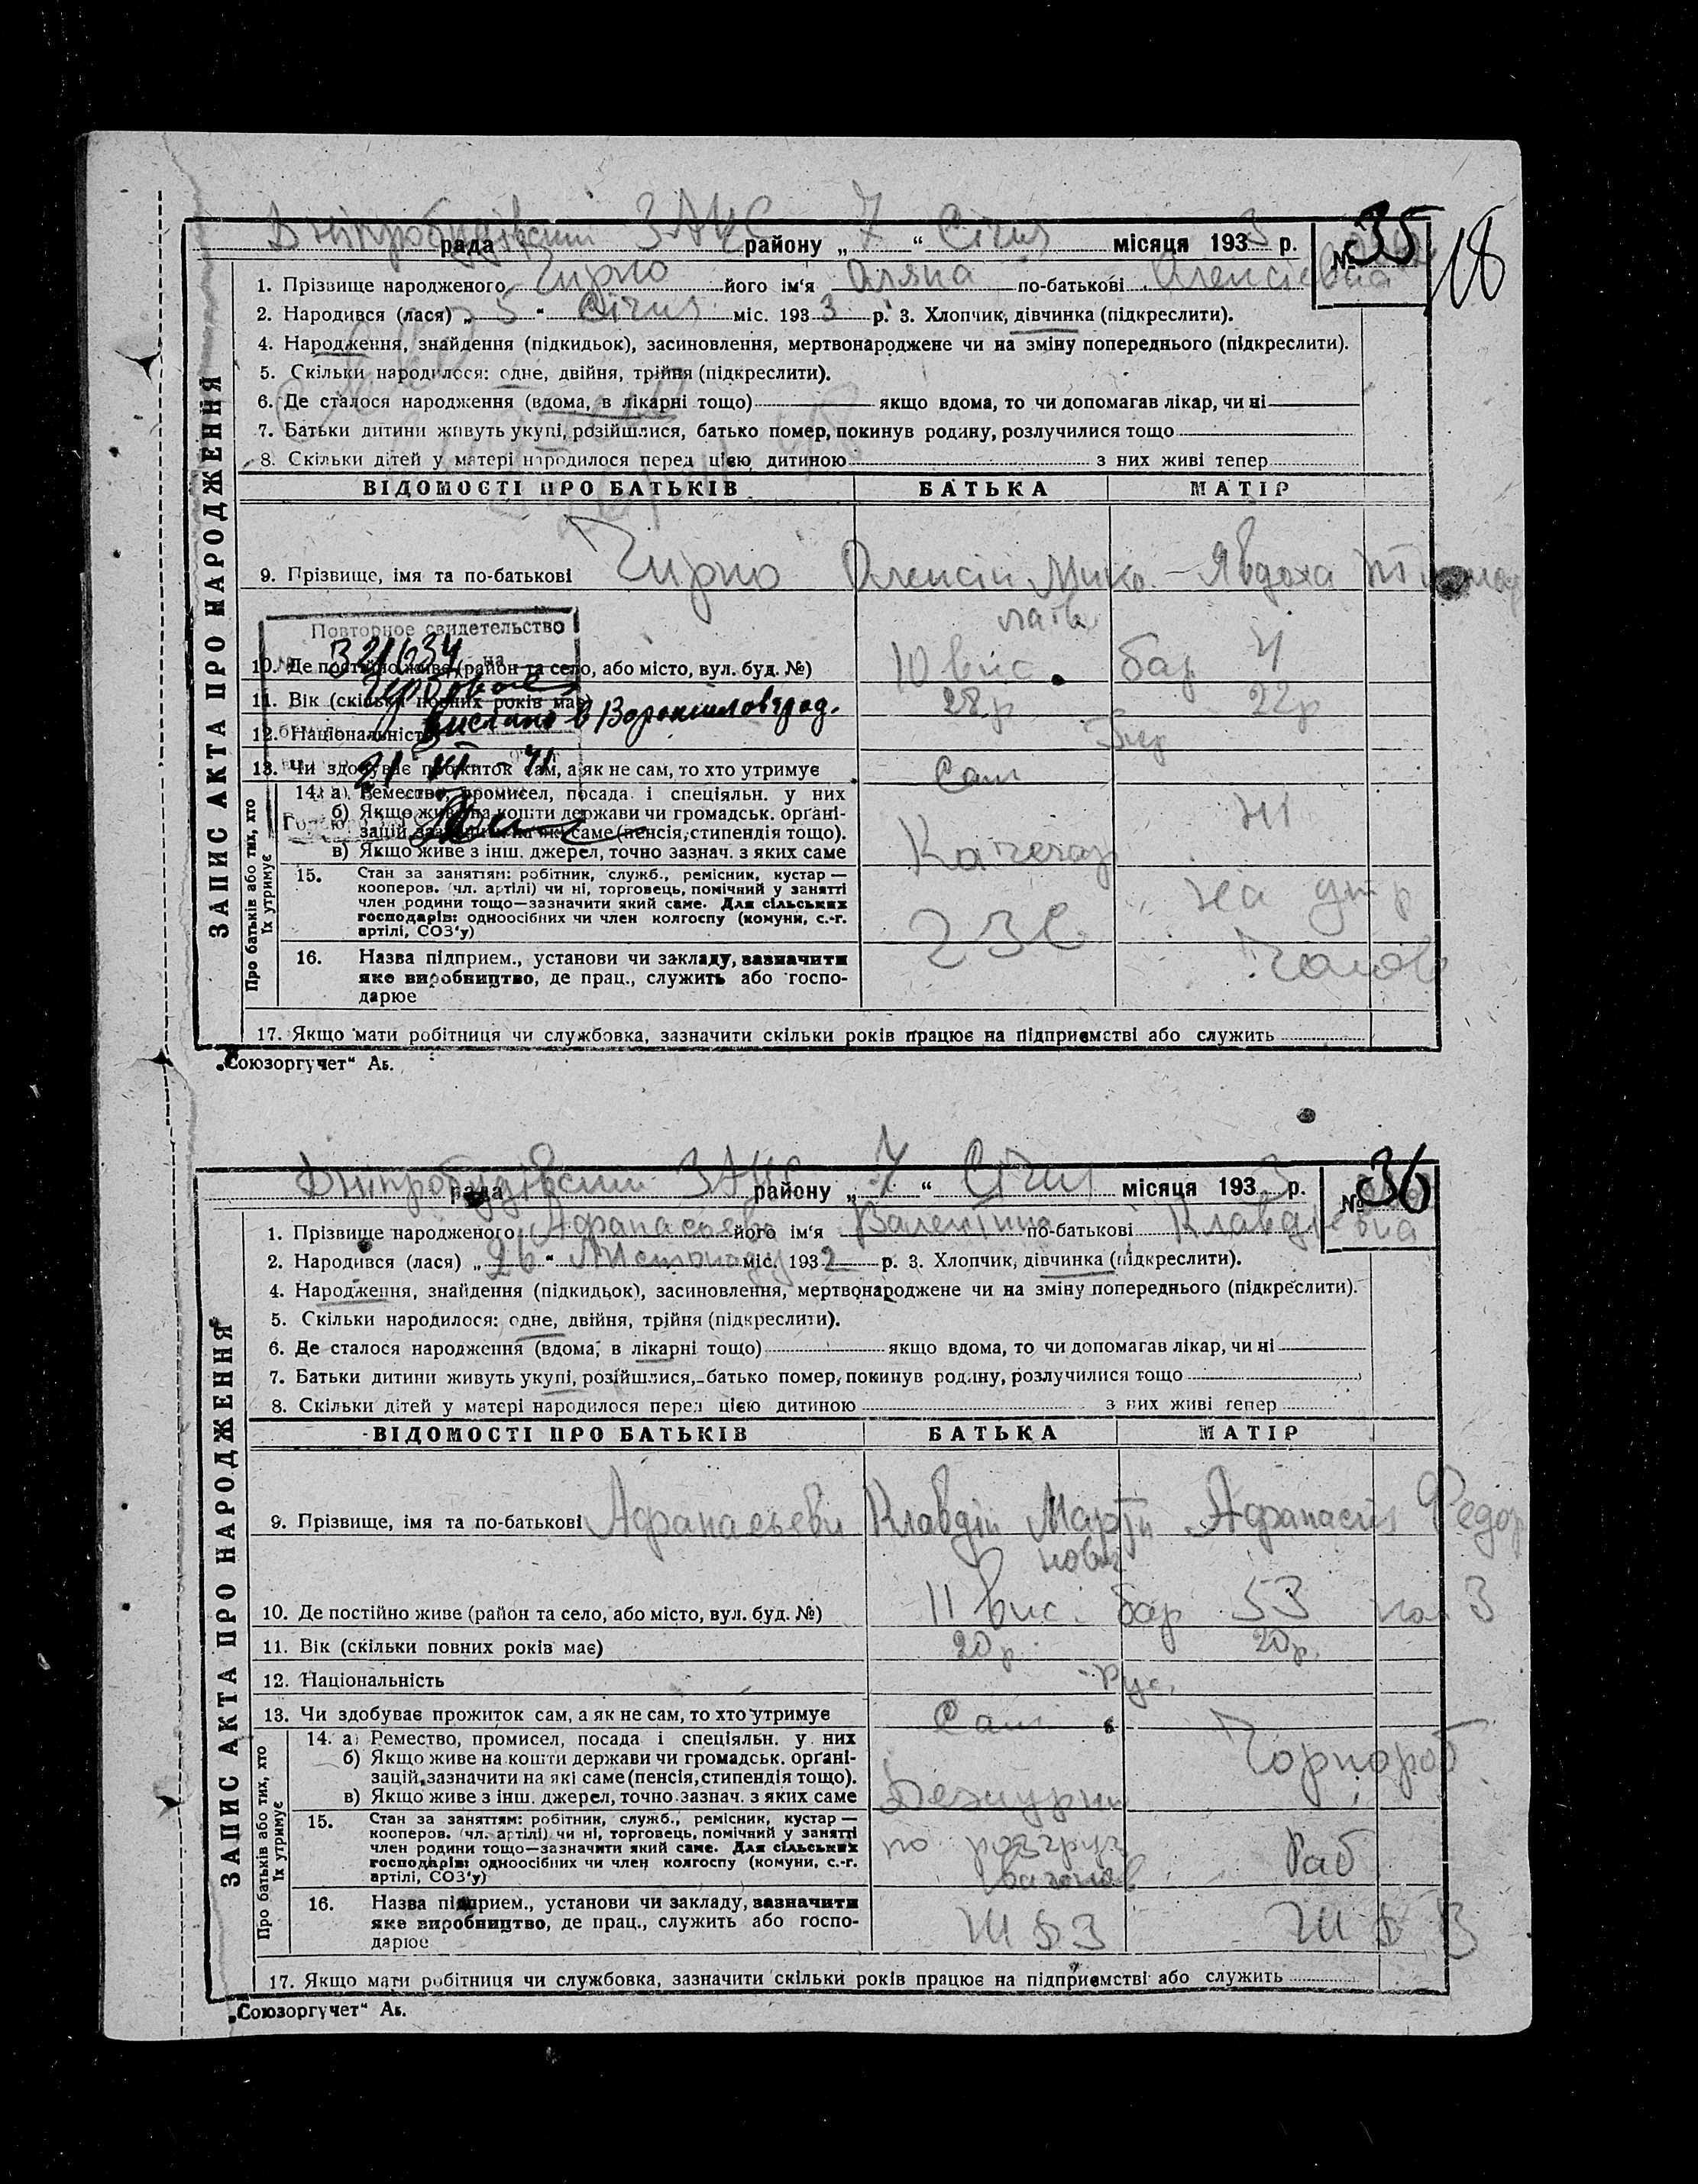 Дніпробудівський ЗАГС
рада району „ 7 “ Січня місяця 1933 р. № 35
18
1. Прізвище народженого Чирко його ім'я по-батькові Олексієвна
2. Народився (лася) „ 5 “ Січня міс. 1933 р. 3. Хлопчик, дівчинка (підкреслити).
4. Народження, знайдення (підкидьок), засиновлення, мертвонароджене чи на зміну попереднього (підкреслити).
5. Скільки народилося: одне, двійня, трійня (підкреслити).
6. Де сталося народження (вдома, в лікарні тощо) якщо вдома, то чи допомагав лікар, чи ні
7. Батьки дитини живуть укупі, розійшлися, батько помер, покинув родину, розлучилися тощо
8. Скільки дітей у матері народилося перед цією дитиною з них живі тепер
ВІДОМОСТІ ПРО БАТЬКІВ БАТЬКА МАТІР
9. Прізвище, імя та по-батькові Чирко Олексій Мико- Явдоха
лаїв
Повторное свидетельство
10. Де постійно живе (район та село, або місто, вул. буд. №) 10 вис. бар 4
11. Вік (скільки повних років має) 28 р 22 р
выслано в Ворошиловград.
12. Національність Укр
21 VI - 41
13. Чи здобуває прожиток сам, а як не сам, то хто утримує Сам
ЗАПИС АКТА ПРО НАРОДЖЕННЯ
Про батьків або тих, хто їх утримує
14. а) Ремество, промисел, посада і спеціяльн. у них
б) Якщо живе на кошти держави чи громадськ. орґані-
зацій, зазначити на які саме (пенсія, стипендія тощо).
в) Якщо живе з інш. джерел, точно зазнач. з яких саме Кочегар
15. Стан за заняттям: робітник, служб., ремісник, кустар —
кооперов. (чл. артілі) чи ні, торговець, помічний у занятті
член родини тощо—зазначити який саме. Для сільських
господарів: одноосібних чи член колгоспу (комуни, с.-г.
артілі, СОЗ'у) на утр
16. Назва підприєм., установи чи закладу, зазначити
яке виробництво, де прац., служить або госпо-
дарює
17. Якщо мати робітниця чи службовка, зазначити скільки років працює на підприємстві або служить
„Союзоргучет“ Аь.
Дніпробудівський ЗАГС
рада району „ 7 “ Січня місяця 1933 р. № 36
1. Прізвище народженого Афанасьєва його ім'я Валентина по-батькові Клавдієвна
2. Народився (лася) „ 26 “ Листопаду міс. 1932 р. 3. Хлопчик, дівчинка (підкреслити).
4. Народження, знайдення (підкидьок), засиновлення, мертвонароджене чи на зміну попереднього (підкреслити).
5. Скільки народилося: одне, двійня, трійня (підкреслити).
6. Де сталося народження (вдома, в лікарні тощо) якщо вдома, то чи допомагав лікар, чи ні
7. Батьки дитини живуть укупі, розійшлися, батько помер, покинув родину, розлучилися тощо
8. Скільки дітей у матері народилося перед цією дитиною з них живі тепер
ВІДОМОСТІ ПРО БАТЬКІВ БАТЬКА МАТІР
9. Прізвище, імя та по-батькові Афанасьеви Клавдій Марти Афанасія Федор
нович
10. Де постійно живе (район та село, або місто, вул. буд. №) 11 вис. бар 53 ком 3
11. Вік (скільки повних років має) 20 р. 20 р.
12. Національність Рус.
13. Чи здобуває прожиток сам, а як не сам, то хто утримує Сам
ЗАПИС АКТА ПРО НАРОДЖЕННЯ
Про батьків або тих, хто їх утримує
14. а) Ремество, промисел, посада і спеціяльн. у них Чорнороб
б) Якщо живе на кошти держави чи громадськ. орґані-
зацій, зазначити на які саме (пенсія, стипендія тощо).
в) Якщо живе з інш. джерел, точно зазнач. з яких саме Дежурни
15. Стан за заняттям: робітник, служб., ремісник, кустар —
кооперов. (чл. артілі) чи ні, торговець, помічний у занятті
член родини тощо—зазначити який саме. Для сільських
господарів: одноосібних чи член колгоспу (комуни, с.-г.
артілі, СОЗ'у) по розгруз вагонов Раб
16. Назва підприєм., установи чи закладу, зазначити
яке виробництво, де прац., служить або госпо-
дарює ШБЗ ШБЗ
17. Якщо мати робітниця чи службовка, зазначити скільки років працює на підприємстві або служить
„Союзоргучет“ Аь.